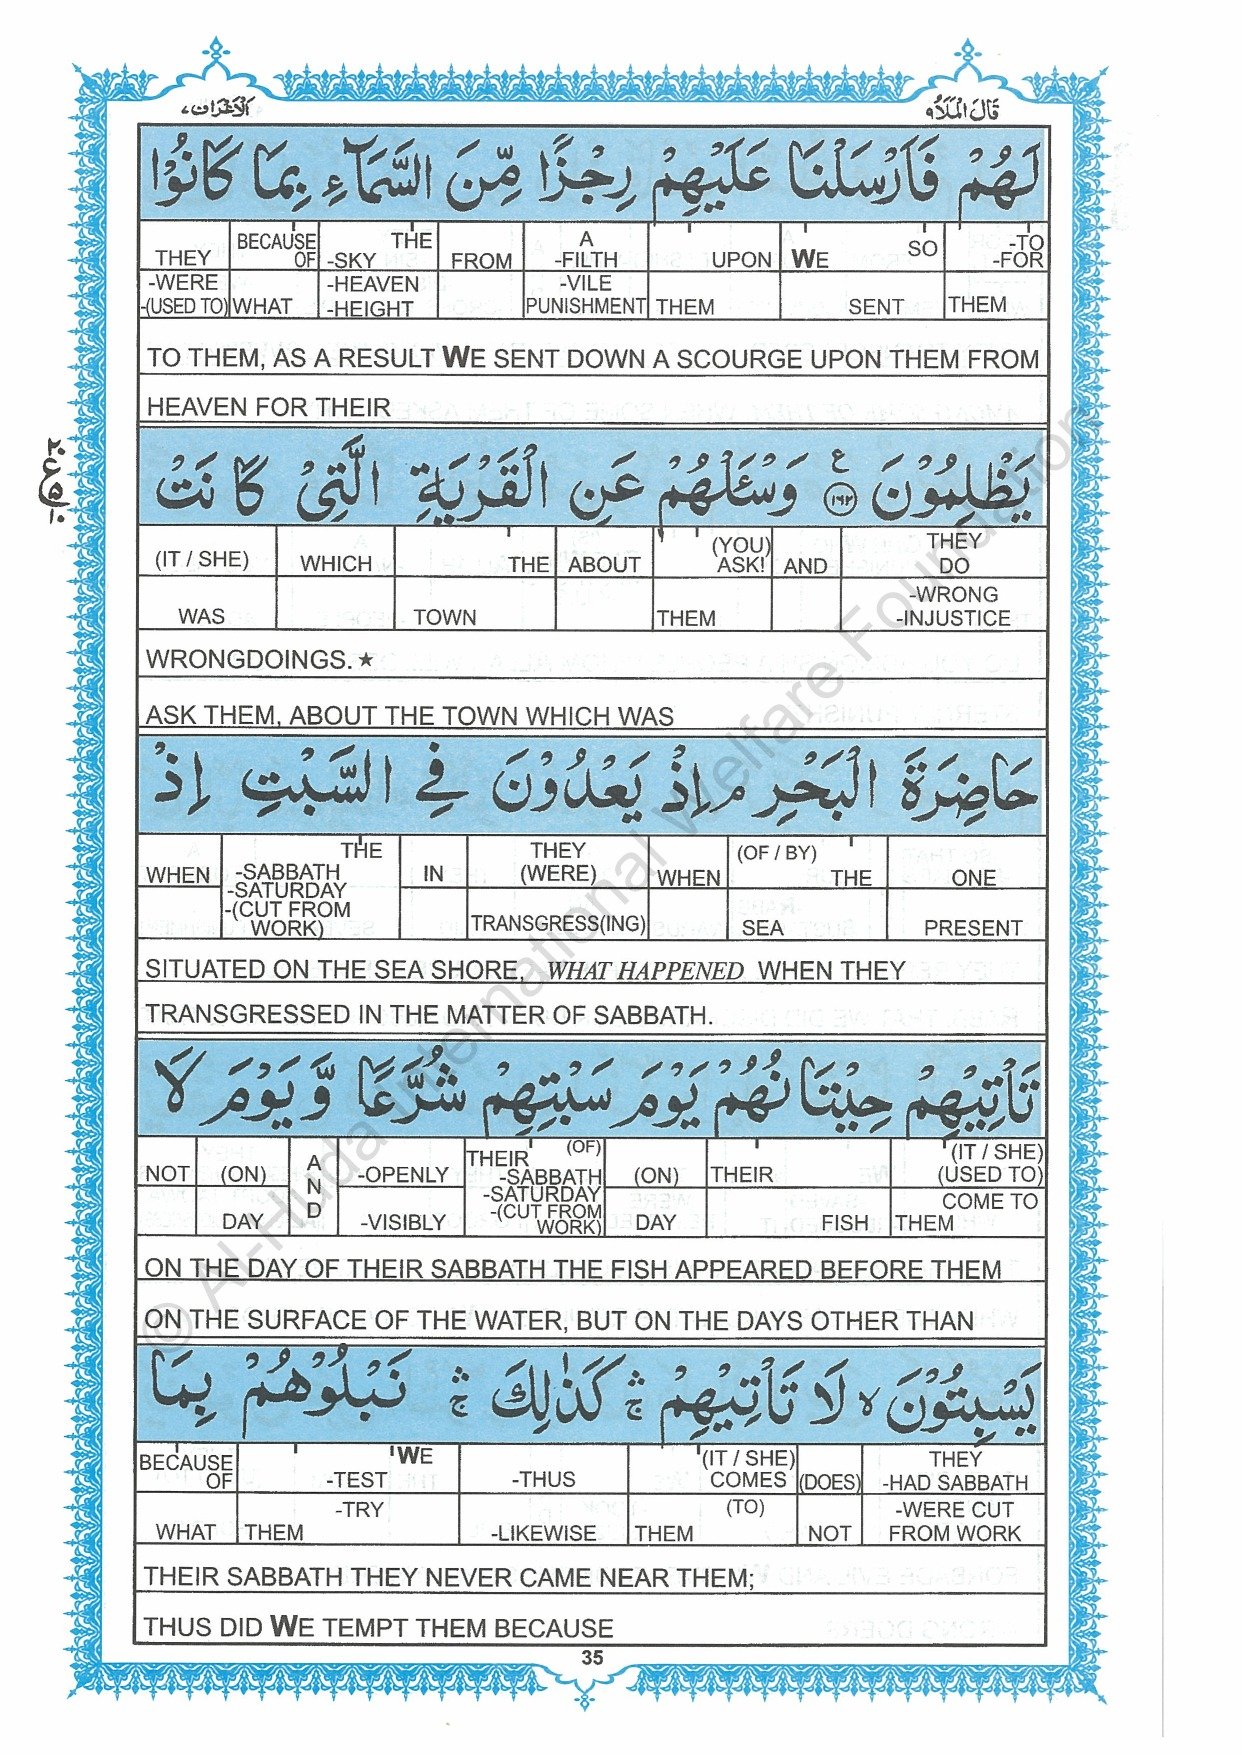 الاعراف ٧
قال الملا ٩
لَهُمْ فَاَرْسَلْنَا عَلَيْهِمْ رِجْزًا مِّنَ السَّمَآءِ بِمَا كَانُوْا
THEY BECAUSE OF THE -SKY FROM A -FILTH UPON WE SO -TO -FOR
-WERE -(USED TO) WHAT -HEAVEN -HEIGHT -VILE PUNISHMENT THEM SENT THEM
TO THEM, AS A RESULT WE SENT DOWN A SCOURGE UPON THEM FROM
HEAVEN FOR THEIR
٢٠ ع ٥ ١٠
يَظْلِمُوْنَ ع ١٦٢ وَسْئَلْهُمْ عَنِ الْقَرْيَةِ الَّتِيْ كَانَتْ
(IT / SHE) WHICH THE ABOUT (YOU) ASK! AND THEY DO
WAS TOWN THEM -WRONG -INJUSTICE
WRONGDOINGS. ★
ASK THEM, ABOUT THE TOWN WHICH WAS
حَاضِرَةَ الْبَحْرِ م اِذْ يَعْدُوْنَ فِي السَّبْتِ اِذْ
WHEN THE -SABBATH -SATURDAY -(CUT FROM WORK) IN THEY (WERE) WHEN (OF / BY) THE ONE
TRANSGRESS(ING) SEA PRESENT
SITUATED ON THE SEA SHORE, WHAT HAPPENED WHEN THEY
TRANSGRESSED IN THE MATTER OF SABBATH.
تَاْتِيْهِمْ حِيْتَانُهُمْ يَوْمَ سَبْتِهِمْ شُرَّعًا وَّيَوْمَ لَا
NOT (ON) AND -OPENLY THEIR (OF) -SABBATH -SATURDAY -(CUT FROM WORK) (ON) THEIR (IT / SHE) (USED TO)
DAY -VISIBLY DAY FISH COME TO THEM
ON THE DAY OF THEIR SABBATH THE FISH APPEARED BEFORE THEM
ON THE SURFACE OF THE WATER, BUT ON THE DAYS OTHER THAN
يَسْبِتُوْنَ لا لَا تَاْتِيْهِمْ ج كَذٰلِكَ ج نَبْلُوْهُمْ بِمَا
BECAUSE OF WE -TEST -THUS (IT / SHE) COMES (DOES) THEY -HAD SABBATH
WHAT THEM -TRY -LIKEWISE THEM (TO) NOT -WERE CUT FROM WORK
THEIR SABBATH THEY NEVER CAME NEAR THEM;
THUS DID WE TEMPT THEM BECAUSE
35
© Al-Huda International Welfare Foundation